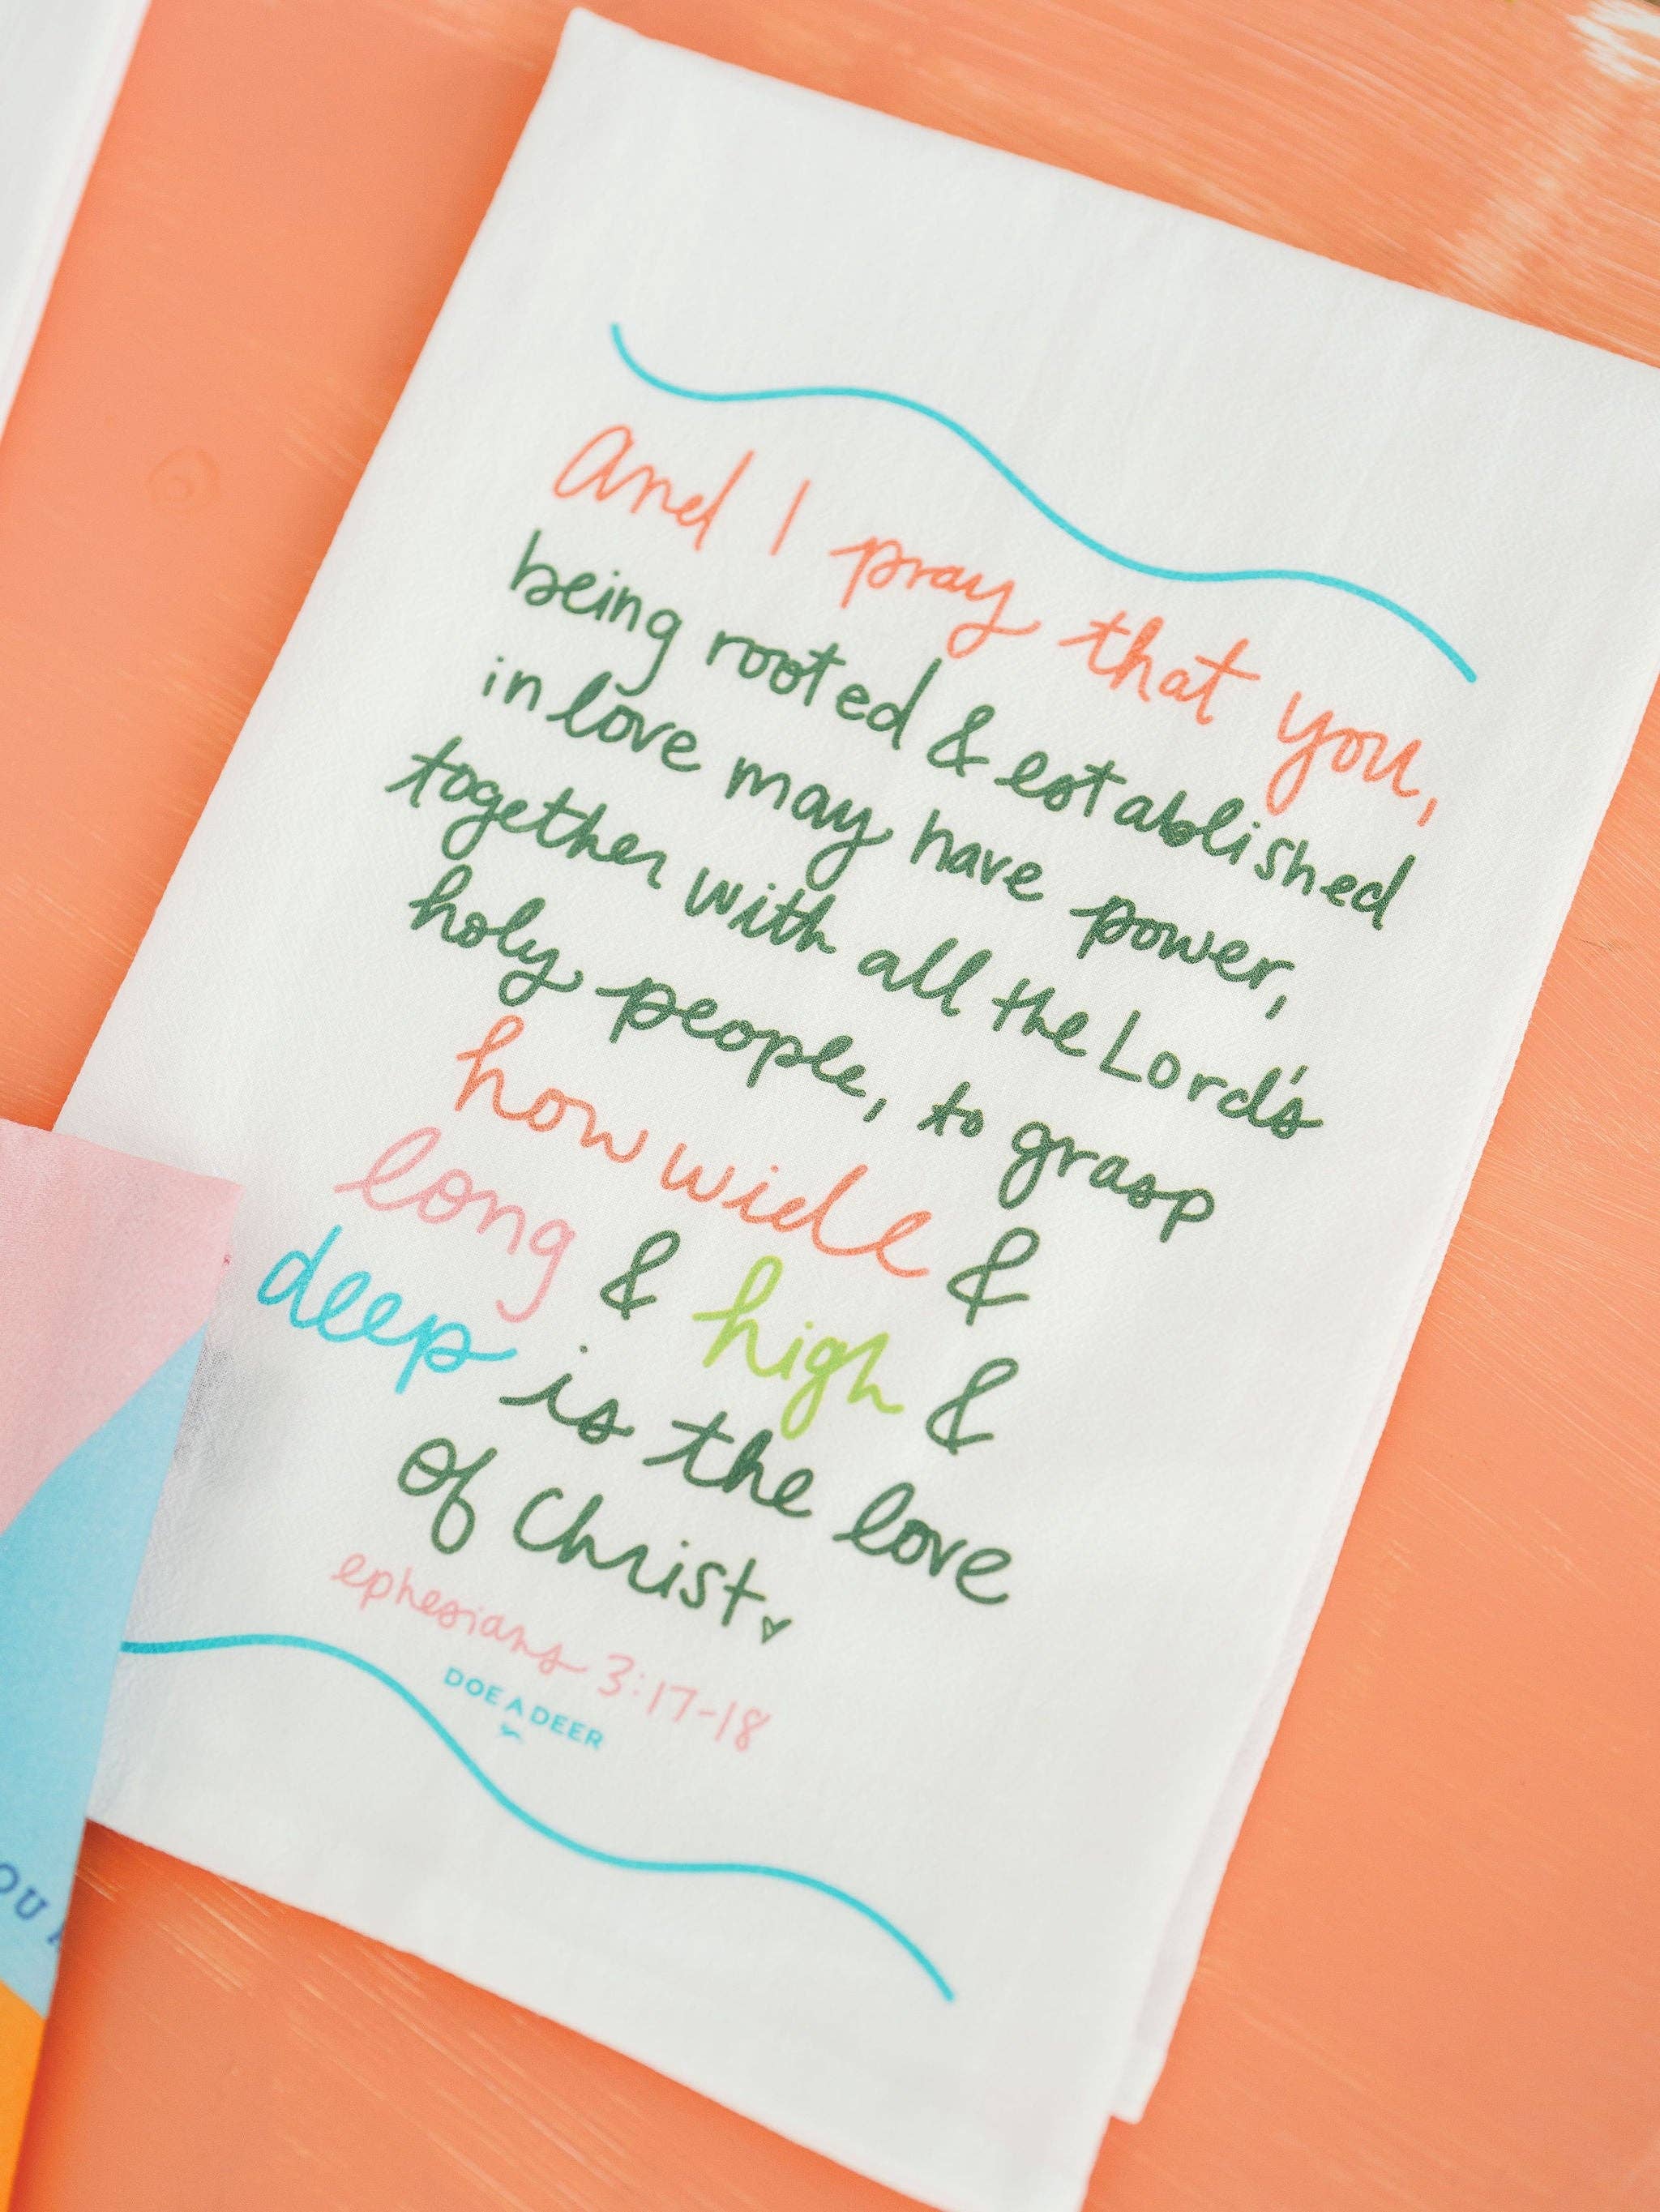 And I pray that you,
being rooted & established
in love may have power,
together with all the Lord's
holy people, to grasp
how wide &
long & high &
deep is the love
of Christ
ephesians 3:17-18
DOE A DEER
OU